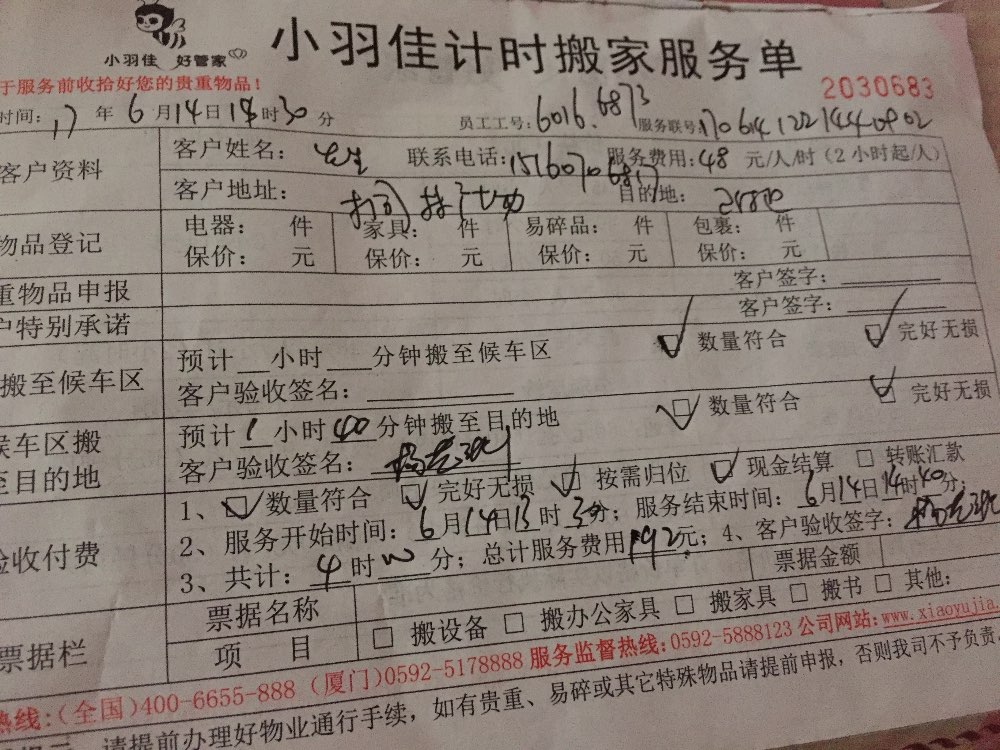 小羽佳 好管家
小羽佳计时搬家服务单
于服务前收拾好您的贵重物品！
2030683
时间：17年6月14日1时30分 员工工号：6016.6873 服务联号：
客户资料
客户姓名：先生 联系电话： 服务费用：48元/人/时（2小时起/人）
客户地址： 目的地：
物品登记
电器： 件 家具： 件 易碎品： 件 包裹： 件
保价： 元 保价： 元 保价： 元 保价： 元
重物品申报 客户签字：
户特别承诺 客户签字：
搬至候车区
预计 小时 分钟搬至候车区 数量符合 完好无损
客户验收签名：
候车区搬至目的地
预计1小时40分钟搬至目的地 数量符合 完好无损
客户验收签名：
验收付费
1、数量符合 完好无损 按需归位 现金结算 转账汇款
2、服务开始时间：6月14日13时3分；服务结束时间：6月14日14时40分；
3、共计：4时分；总计服务费用192元；4、客户验收签字：
票据栏
票据名称 票据金额
项目 搬设备 搬办公家具 搬家具 搬书 其他：
热线：（全国）400-6655-888（厦门）0592-5178888 服务监督热线：0592-5888123 公司网站：www.xiaoyujia.
请提前办理好物业通行手续，如有贵重、易碎或其它特殊物品请提前申报，否则我司不予负责